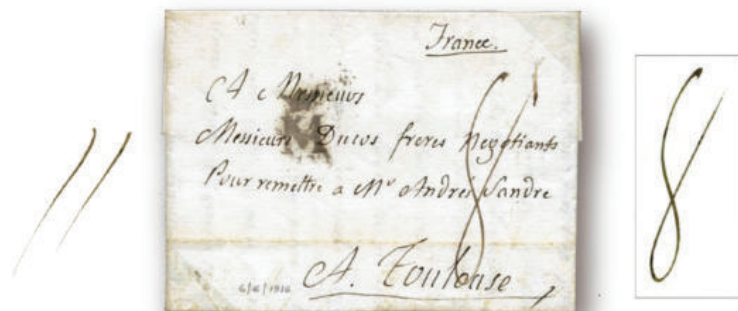 France.
A Messieurs
M
Messieurs Ducos freres Negotiants
Pour remettre a Mr Andres Sandre
A. Toulouse
11
8
8